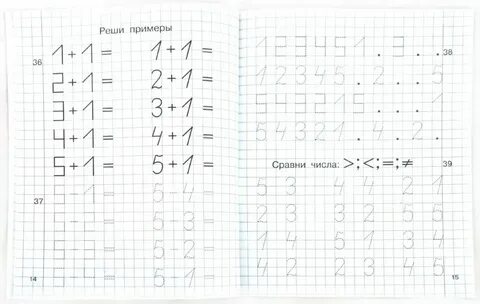 Реши примеры
36
1+1= 1+1=
2+1= 2+1=
3+1= 3+1=
4+1= 4+1=
5+1= 5+1=
37
5-1= 5-4=
5-3= 5-3=
5-2= 5-2=
5-4= 5-1=
14
1 2 3 4 5 1 . 3 . . . 38
1 2 3 4 5 . 2 . . 5
5 4 3 2 1 5 . . . 1
5 4 3 2 1 . 4 . 2 .
Сравни числа: >;<;=;≠ 39
5 3 4 4 2 1
2 3 3 2 5 5
1 4 5 1 3 4
4 2 2 3 4 5
15